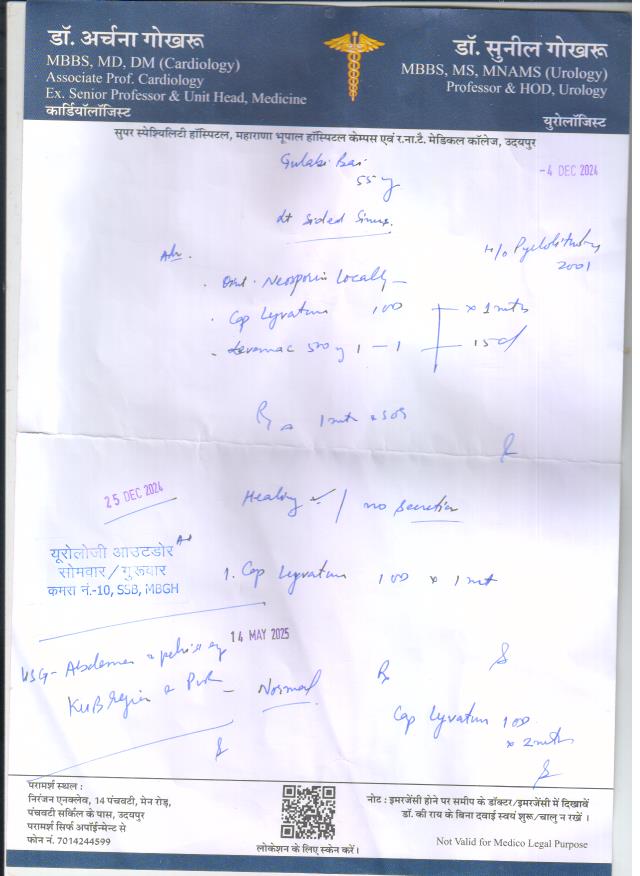 डॉ. अर्चना गोखरू
MBBS, MD, DM (Cardiology)
Associate Prof. Cardiology
Ex. Senior Professor & Unit Head, Medicine
कार्डियोलॉजिस्ट
डॉ. सुनील गोखरू
MBBS, MS, MNAMS (Urology)
Professor & HOD, Urology
युरोलॉजिस्ट
सुपर स्पेश्यिलिटी हॉस्पिटल, महाराणा भूपाल हॉस्पिटल केम्पस एवं र.ना.टै. मेडिकल कॉलेज, उदयपुर
Gulabi Bai
55 y
-4 DEC 2024
Lt Sided Sinus.
H/o Pyelolithotomy
2001
Adv.
Oint. Neosporin Locally
Cap Lyvatum 100 x 1 mth
500 1-1 15 d
1 mth
25 DEC 2024
Healing / no Secretion
यूरोलोजी आउटडोर
सोमवार/गुरूवार
कमरा नं.-10, SSB, MBGH
1. Cap Lyvatum 100 x 1 mt
14 MAY 2025
USG- Abdomen pelvis
KUB region PVR - Normal
Rx
Cap Lyvatum 100
x 2 mth
परामर्श स्थल :
निरंजन एनक्लेव, 14 पंचवटी, मेन रोड़,
पंचवटी सर्किल के पास, उदयपुर
परामर्श सिर्फ अपॉईन्मेन्ट से
फोन नं. 7014244599
लोकेशन के लिए स्केन करें।
नोट : इमरजेंसी होने पर समीप के डॉक्टर/इमरजेंसी में दिखावें
डॉ. की राय के बिना दवाई स्वयं शुरू/चालु न रखें।
Not Valid for Medico Legal Purpose